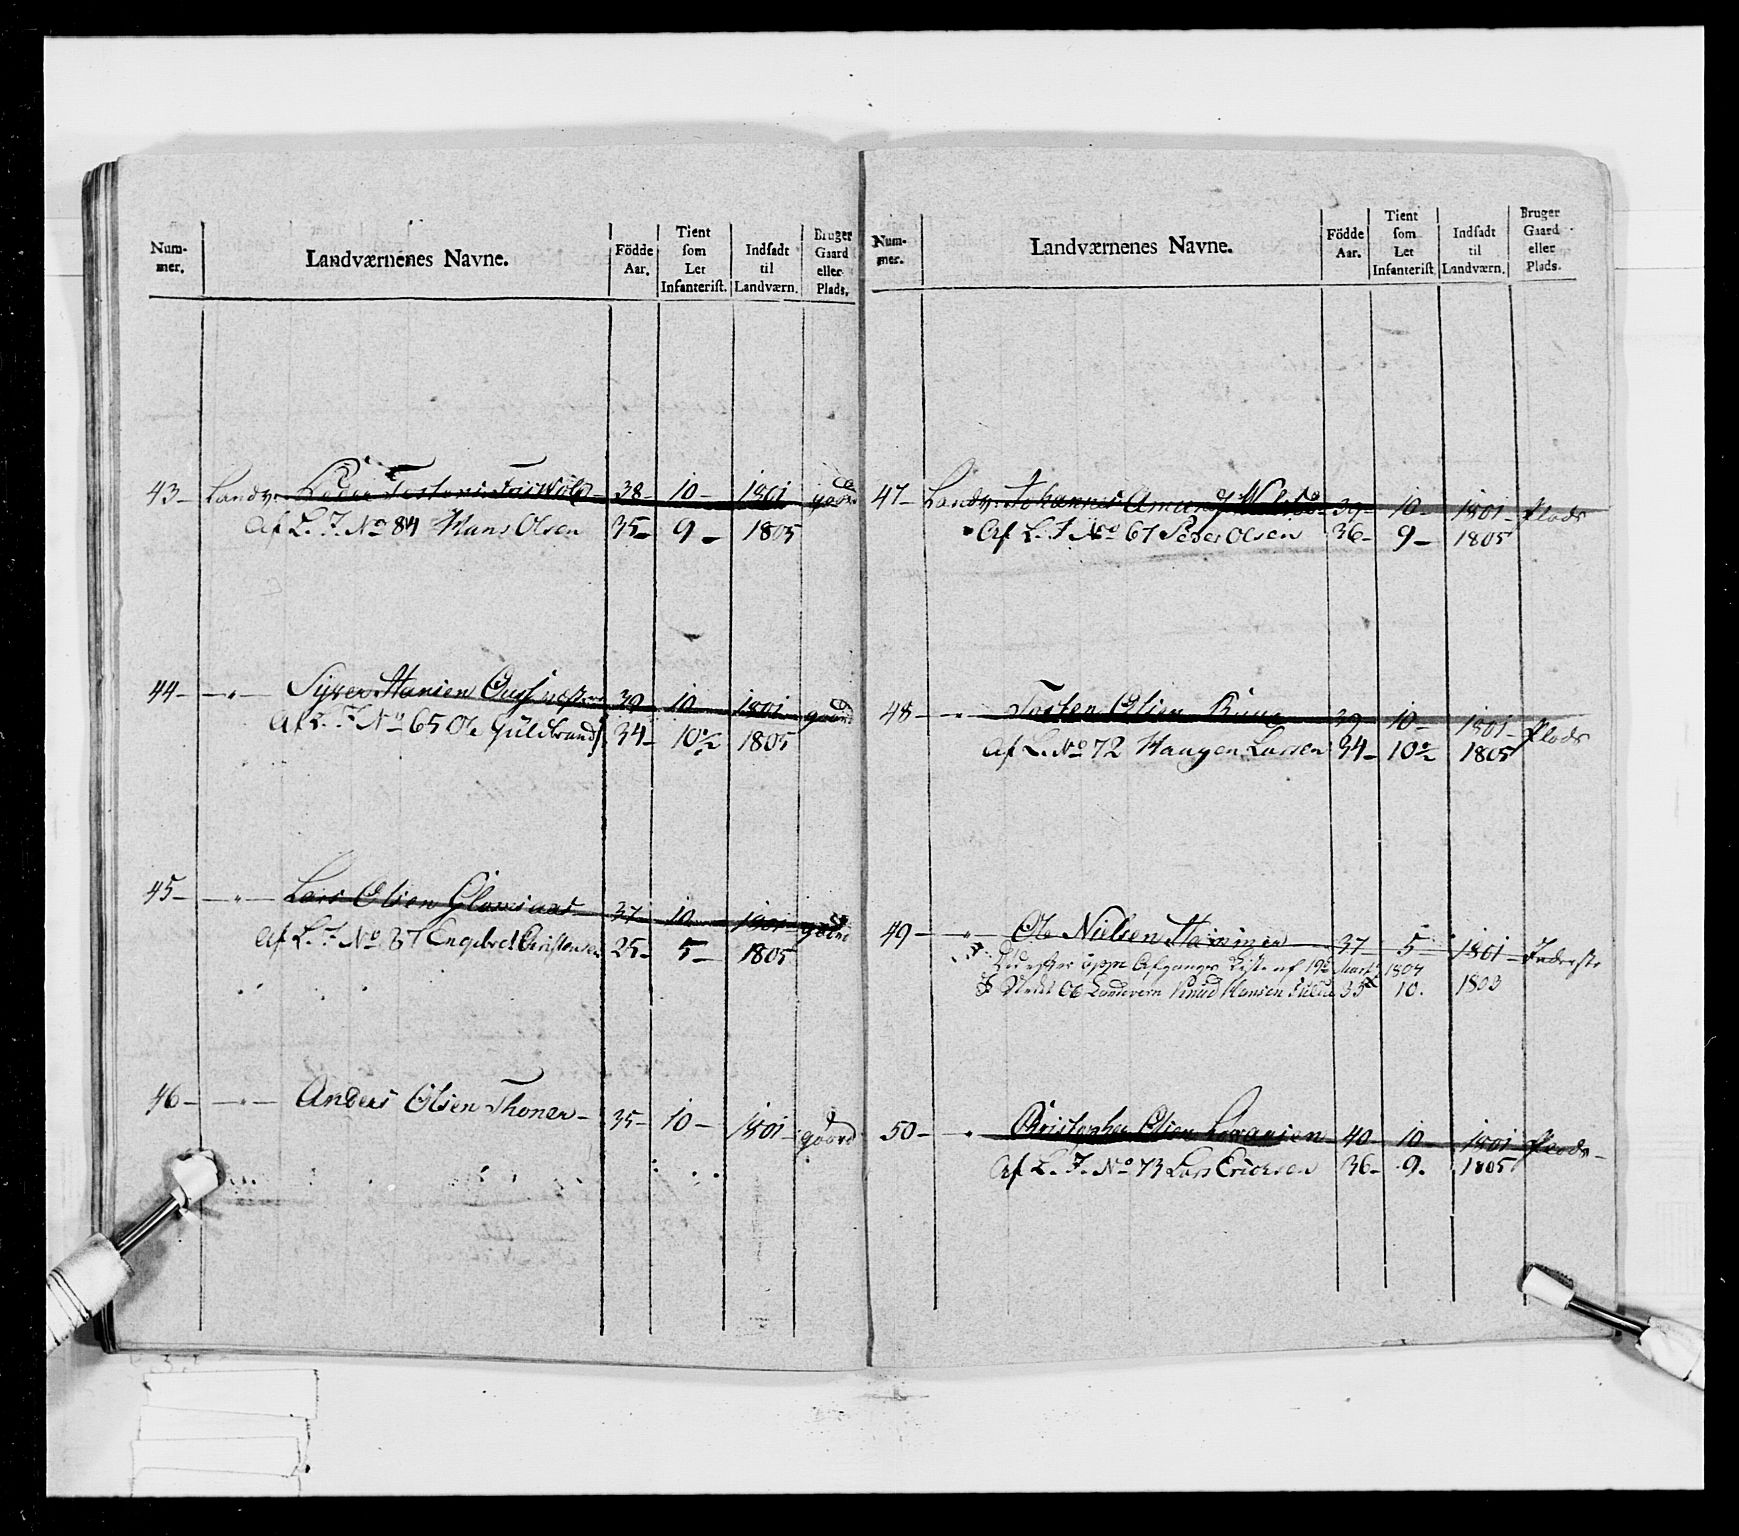 Num-
mer.
Landværnenes Navne.
Födde
Aar.
Tient
som
Let
Infanterist.
Indsadt
til
Landværn.
Bruger
Gaard
eller
Plads.
43- Landv. Peder 38- 10- 1801 gaard
Af L. I. No 84 Hans Olsen 35- 9- 1805
44- -"- Syver Hansen 39 10 1801 gaard
Af L. I. No 65 Ole Guldbrands 34- 10½ 1805
45- -"- Lars Olsen 37- 10 1801 gaard
Af L. I. No 37 Engebret Christensen 25- 5- 1805
46- -"- Anders Olsen Thoner- 35- 10- 1801- gaard
Num-
mer.
Landværnenes Navne.
Födde
Aar.
Tient
som
Let
Infanterist.
Indsadt
til
Landværn.
Bruger
Gaard
eller
Plads.
47- Landv. Johannes 39- 10- 1801- Plads
Af L. I No 67 Peder Olsen 36- 9- 1805
48- -"- Tosten Olsen 39 10- 1801- Plads
Af L. No 72 Haagen Larsen 34- 10½ 1805
49- -"- Ole Nielsen 37- 5- 1801- Inderste
Afgangs Liste af 19de Marti 1804
Knud Hansen 35 10. 1803
50- -"- Christopher Olsen 40- 10- 1801- Plads-
Af L. I. No 73 Lars Ericksen 36- 9. 1805